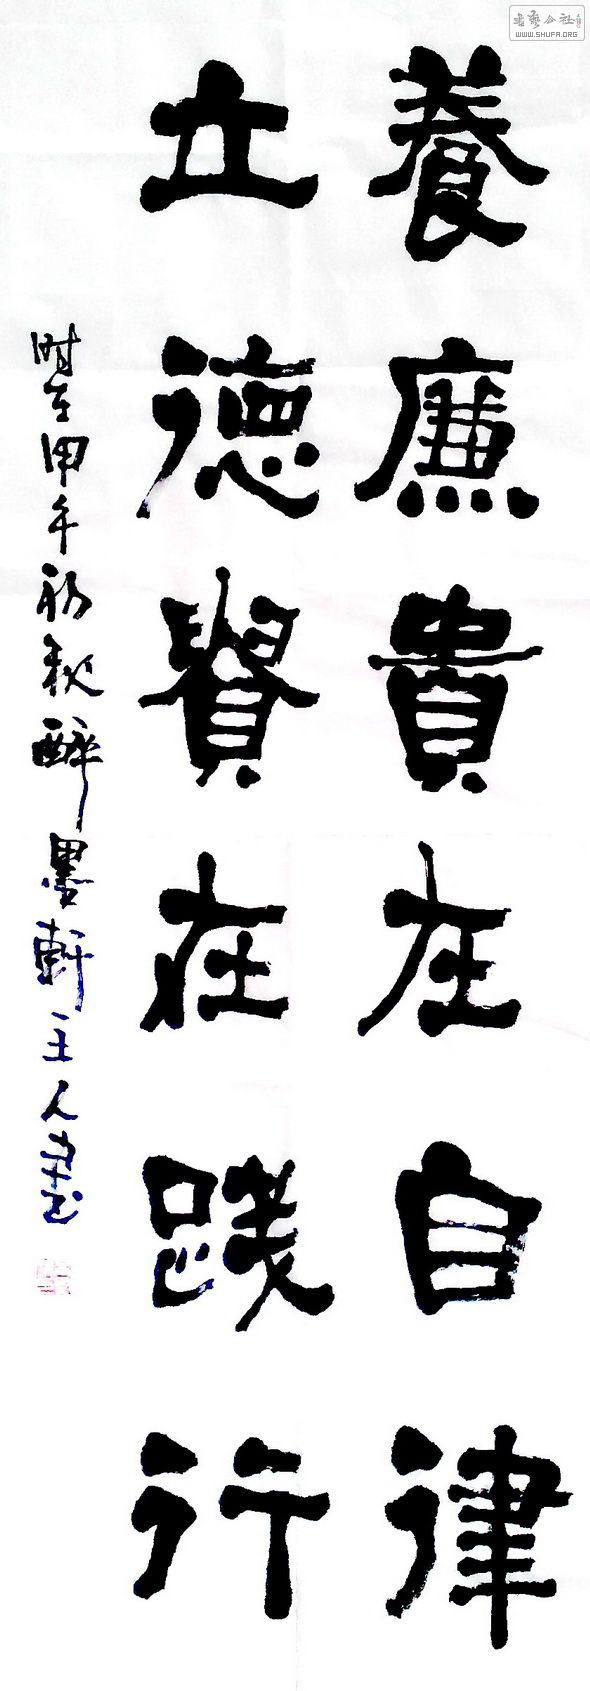 養廉貴在自律
立德贵在践行
时在甲午初秋醉墨軒主人書
书艺公社
WWW.SHUFA.ORG